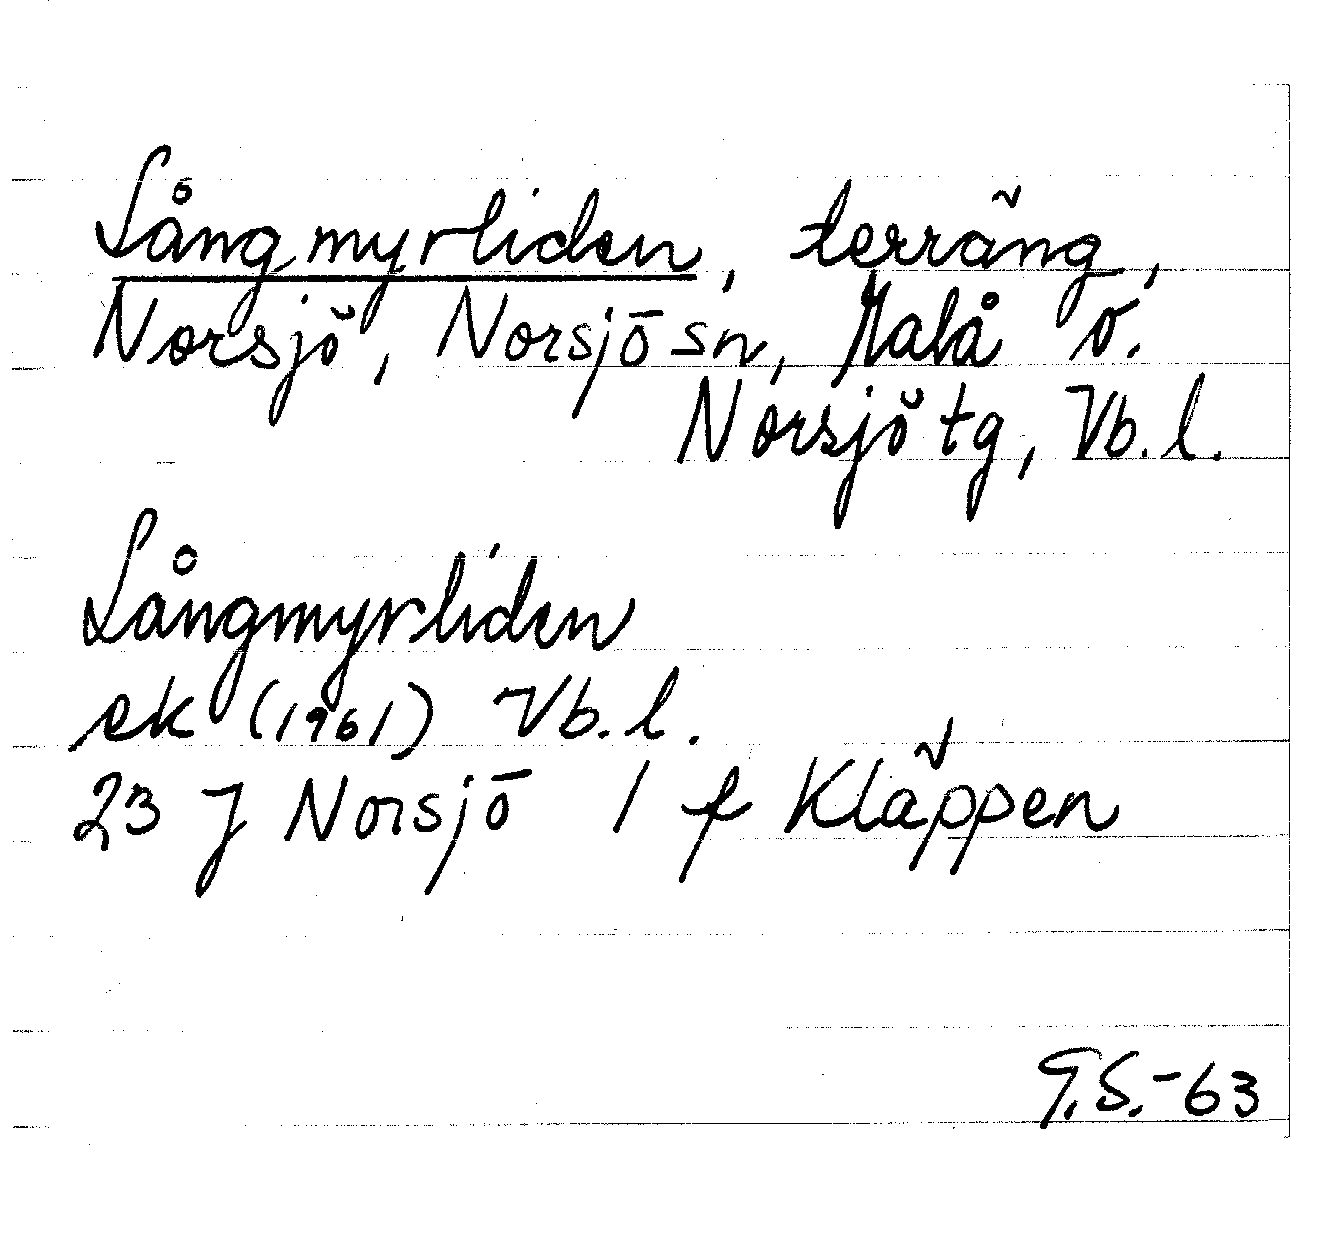 Långmyrliden, terräng,
Norsjö, Norsjö sn, Malå o.
Norsjö tg, Vb.l.
Långmyrliden
ek (1961) Vb.l.
23 J Norsjö 1 f Kläppen
G.S.-63